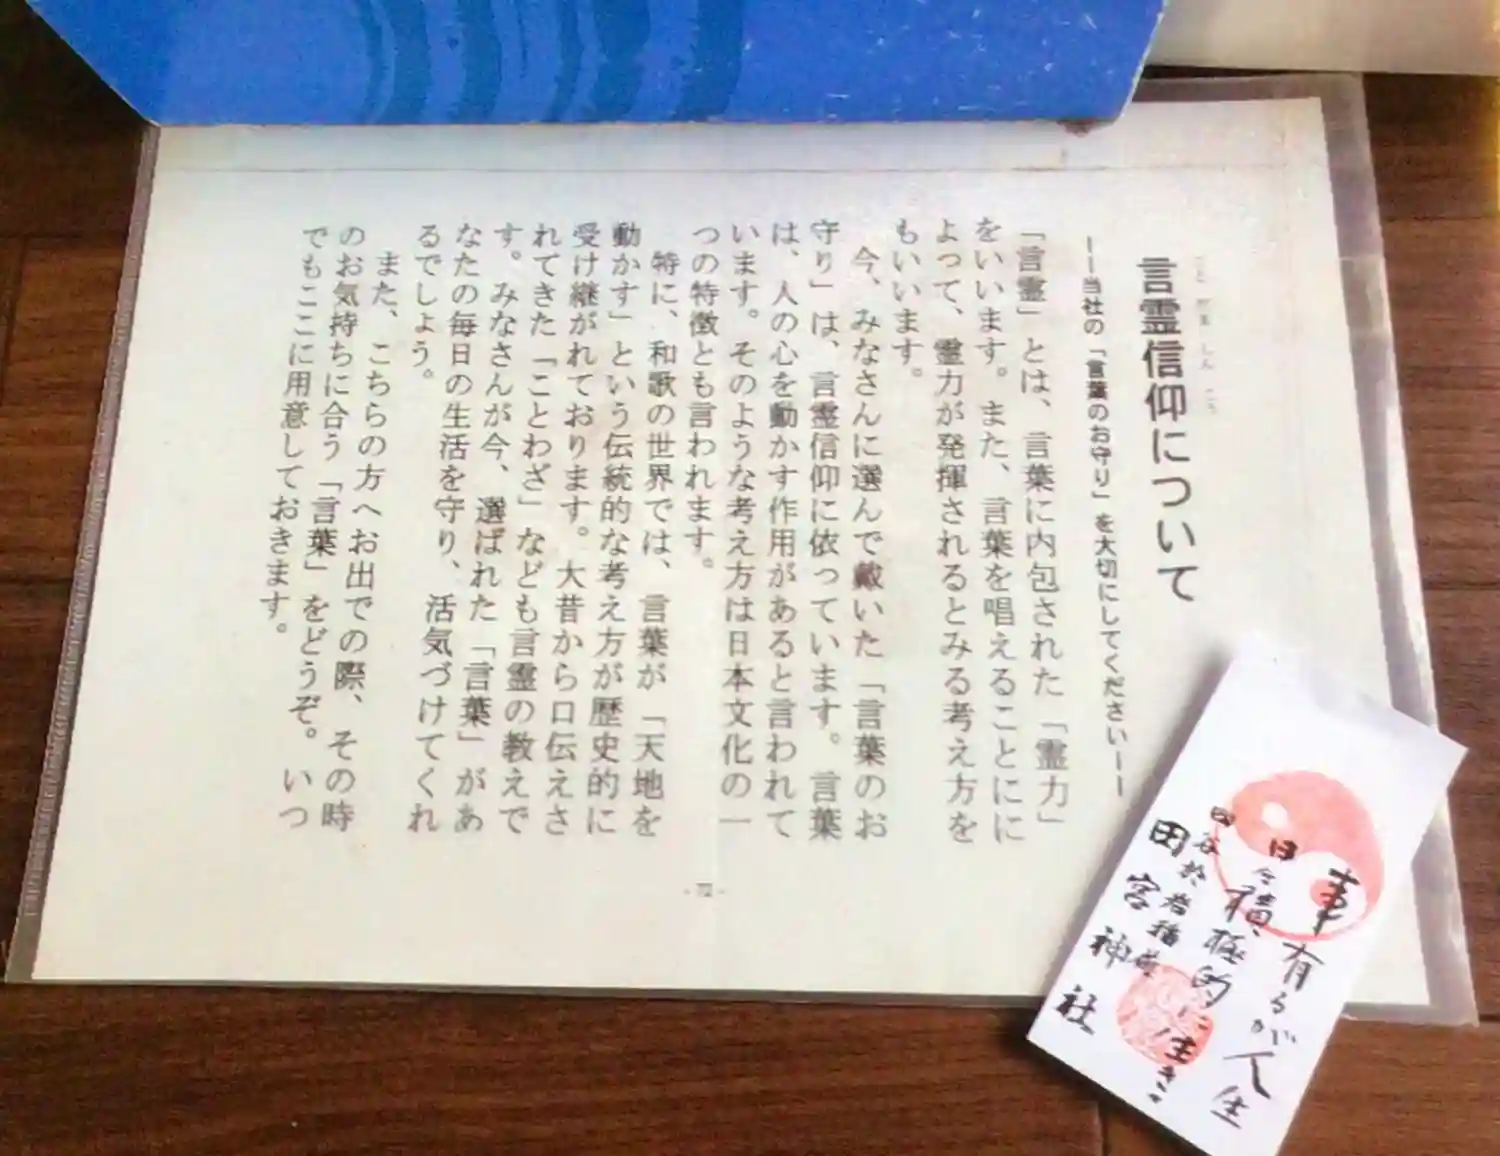 ことだましんこう
言霊信仰について
ーー当社の「言葉のお守り」を大切にしてくださいーー
「言霊」とは、言葉に内包された「霊力」
をいいます。また、言葉を唱えることにに
よって、霊力が発揮されるとみる考え方を
もいいます。
今、みなさんに選んで戴いた「言葉のお
守り」は、言霊信仰に依っています。言葉
は、人の心を動かす作用があると言われて
います。そのような考え方は日本文化の一
つの特徴とも言われます。
特に、和歌の世界では、言葉が「天地を
動かす」という伝統的な考え方が歴史的に
受け継がれております。大昔から口伝えさ
れてきた「ことわざ」なども言霊の教えで
す。みなさんが今、選ばれた「言葉」があ
なたの毎日の生活を守り、活気づけてくれ
るでしょう。
また、こちらの方へお出での際、その時
のお気持ちに合う「言葉」をどうぞ。いつ
でもここに用意しておきます。
- 72 -
事有るが人生
日々積極的に生きこ
四谷於岩稲荷
田宮神社